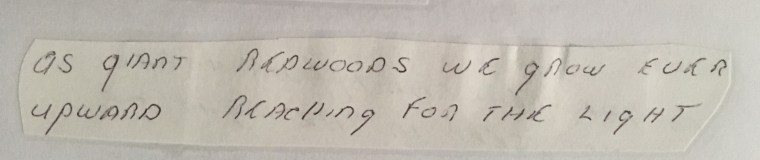 as giant REDWOODS WE grow EVER
upward REACHing for THE LIGHT